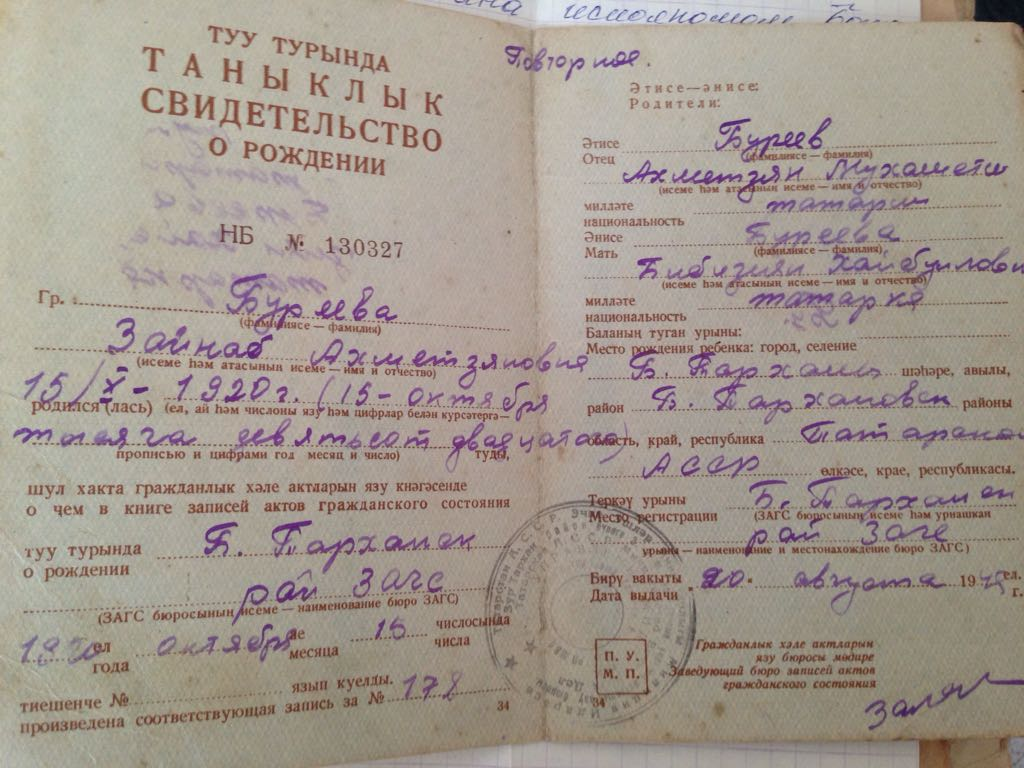 ТУУ ТУРЫНДА
ТАНЫКЛЫК
СВИДЕТЕЛЬСТВО
О РОЖДЕНИИ
НБ № 130327
Гр. Буреева
(фамилиясе — фамилия)
Зайнаб Ахметзяновна
(исеме һәм атасының исеме — имя и отчество)
15/X - 1920 г. (15 - октября
родился (лась) (ел, ай һәм числоны язу һәм цифрлар белән курсәтергә —
тысяча девятьсот двадцатого)
прописью и цифрами год месяц и число) туды,
шул хакта гражданлык хәле актларын язу кнәгәсендә
о чем в книге записей актов гражданского состояния
туу турында
о рождении
Б. Тархан
рай Загс
(ЗАГС бюросының исеме — наименование бюро ЗАГС)
ел октября не 15 числосында
года месяца числа
тиешенче № язып куелды.
произведена соответствующая запись за № 178
34
Повторное.
Әтисе—әнисе:
Родители:
Әтисе
Отец
Буреев
(фамилиясе — фамилия)
Ахметзян
(исеме һәм атасының исеме — имя и отчество)
милләте
национальность
татарин
Әнисе
Мать
Буреева
(фамилиясе — фамилия)
Хайбулловн
(исеме һәм атасының исеме — имя и отчество)
милләте
национальность
татарка
Баланың туган урыны:
Место рождения ребенка: город, селение
Б. Тарханы шәһәре, авылы,
район Б. Тархановск районы
область, край, республика Татарская
АССР өлкәсе, крае, республикасы.
Теркәү урыны
Место регистрации
Б. Тархан
(ЗАГС бюросының исеме һәм урнашкан
рай Загс
урыны — наименование и местонахождение бюро ЗАГС)
Бирү вакыты
Дата выдачи
20. августа 19 ел.
г.
П. У.
М. П.
Гражданлык хәле актларын
язу бюросы мөдире
Заведующий бюро записей актов
гражданского состояния
34